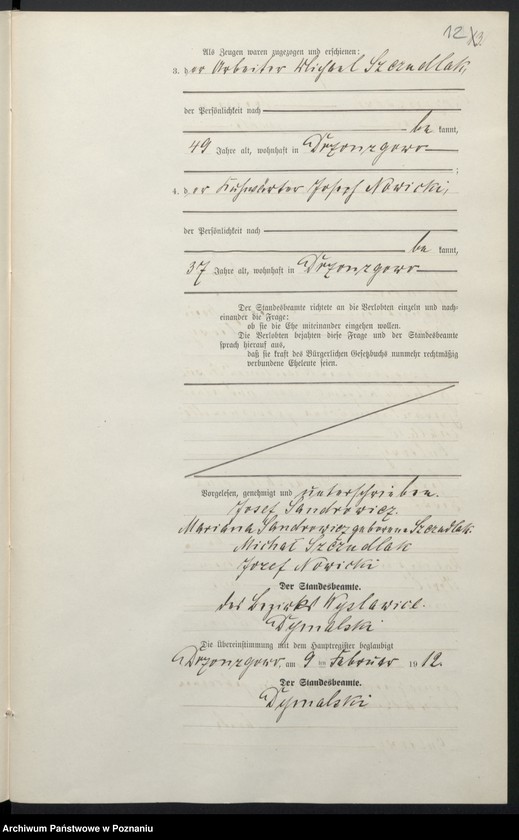 12 13
Als Zeugen waren zugezogen und erschienen:
3. der Arbeiter Michael Szczudlak,
der Persönlichkeit nach
be kannt,
49 Jahre alt, wohnhaft in Drzonzgowo
;
4. der Kuhwärter Joseph Nowicki,
der Persönlichkeit nach
be kannt,
37 Jahre alt, wohnhaft in Drzonzgowo
Der Standesbeamte richtete an die Verlobten einzeln und nach-
einander die Frage:
ob sie die Ehe miteinander eingehen wollen.
Die Verlobten bejahten diese Frage und der Standesbeamte
sprach hierauf aus,
daß sie kraft des Bürgerlichen Gesetzbuchs nunmehr rechtmäßig
verbundene Eheleute seien.
Vorgelesen, genehmigt und unterschrieben.
Josef Sandrowicz.
Marianna Sandrowicz geborene Szczudlak.
Michał Szczudlak
Jozef Nowicki
Der Standesbeamte.
des Bezirks
Dymalski
Die Übereinstimmung mit dem Hauptregister beglaubigt
Drzonzgowo, am 9 ten Februar 19 12.
Der Standesbeamte.
Dymalski
Archiwum Państwowe w Poznaniu